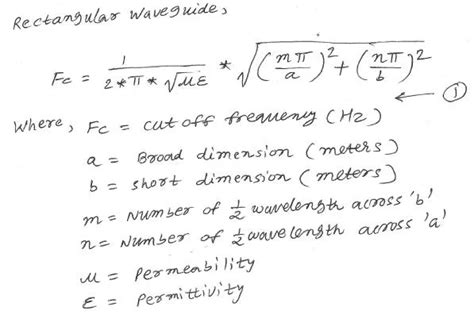 Rectangular Waveguide,
Fc = 1 / (2*π*√με) * √((mπ/a)² + (nπ/b)²)
①
Where, Fc = cut off frequency (Hz)
a = Broad dimension (meters)
b = short dimension (meters)
m = Number of ½ wavelength across 'b'
n = Number of ½ wavelength across 'a'
μ = Permeability
ε = Permittivity